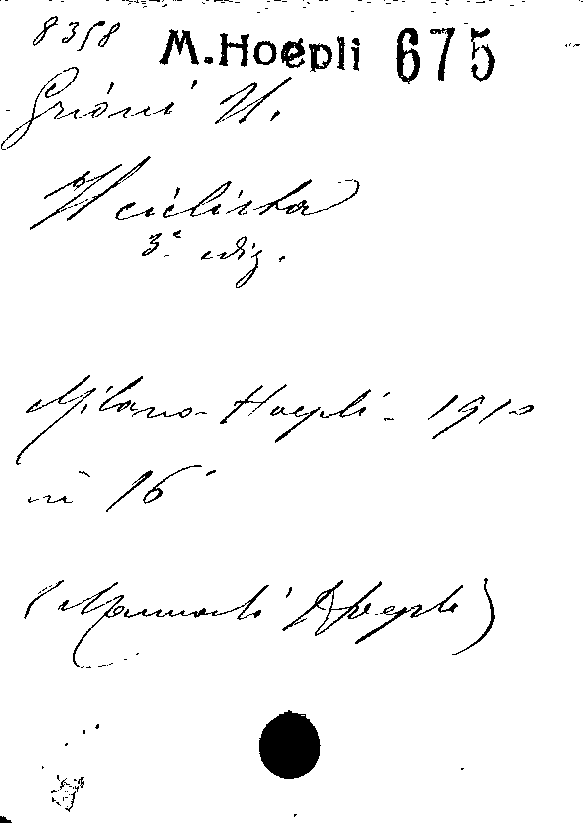 8358 M. Hoepli 675
Grioni U.
Il ciclista
3ª ediz.
Milano - Hoepli - 1910
in 16°
(Manuali Hoepli)